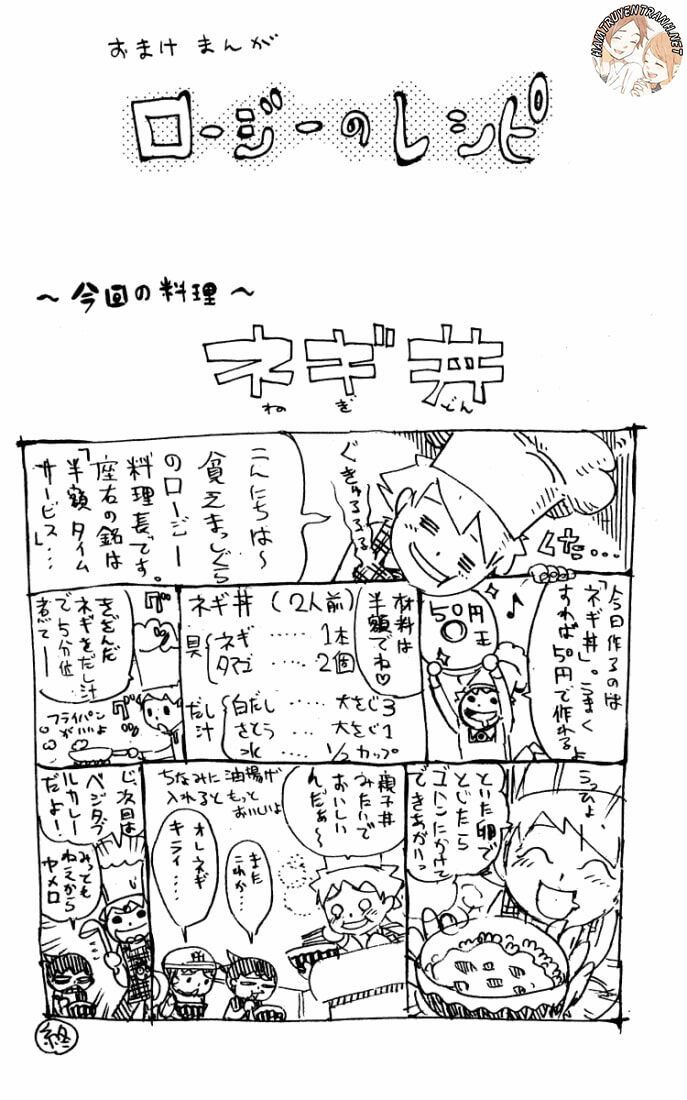 HAMTRUYENTRANH.NET
おまけまんが
ロージーのレシピ
～今回の料理～
ネギ丼
ねぎどん
こんにちは〜
貧乏まっしぐら
のロージー
料理長です。
座右の銘は
「半額タイム
サービス」…
ぐきゅるるるる
くた…
今日作るのは
「ネギ丼」。うまく
すれば50円で作れるよ
うっひょ、
50円玉
♪
材料は
半額でね♡
ネギ丼(2人前)
具
ネギ……1本
タマゴ……2個
だし汁
白だし……大さじ3
さとう……大さじ1
水……1/2カップ
きざんだ
ネギをだし汁
で5分位
煮て—
フライパン
がいいよ
といた卵で
とじたら
ゴハンにかけて
できあがりっ
親子丼
みたいで
おいしい
んだぁ〜
ちなみに油揚げ
入れるともっと
おいしいよ
また
これか…
オレネギ
キライ…
じ、次回は
ベジタブ
ルカレー
だよ!
みっとも
ねぇから
ヤメロ
終